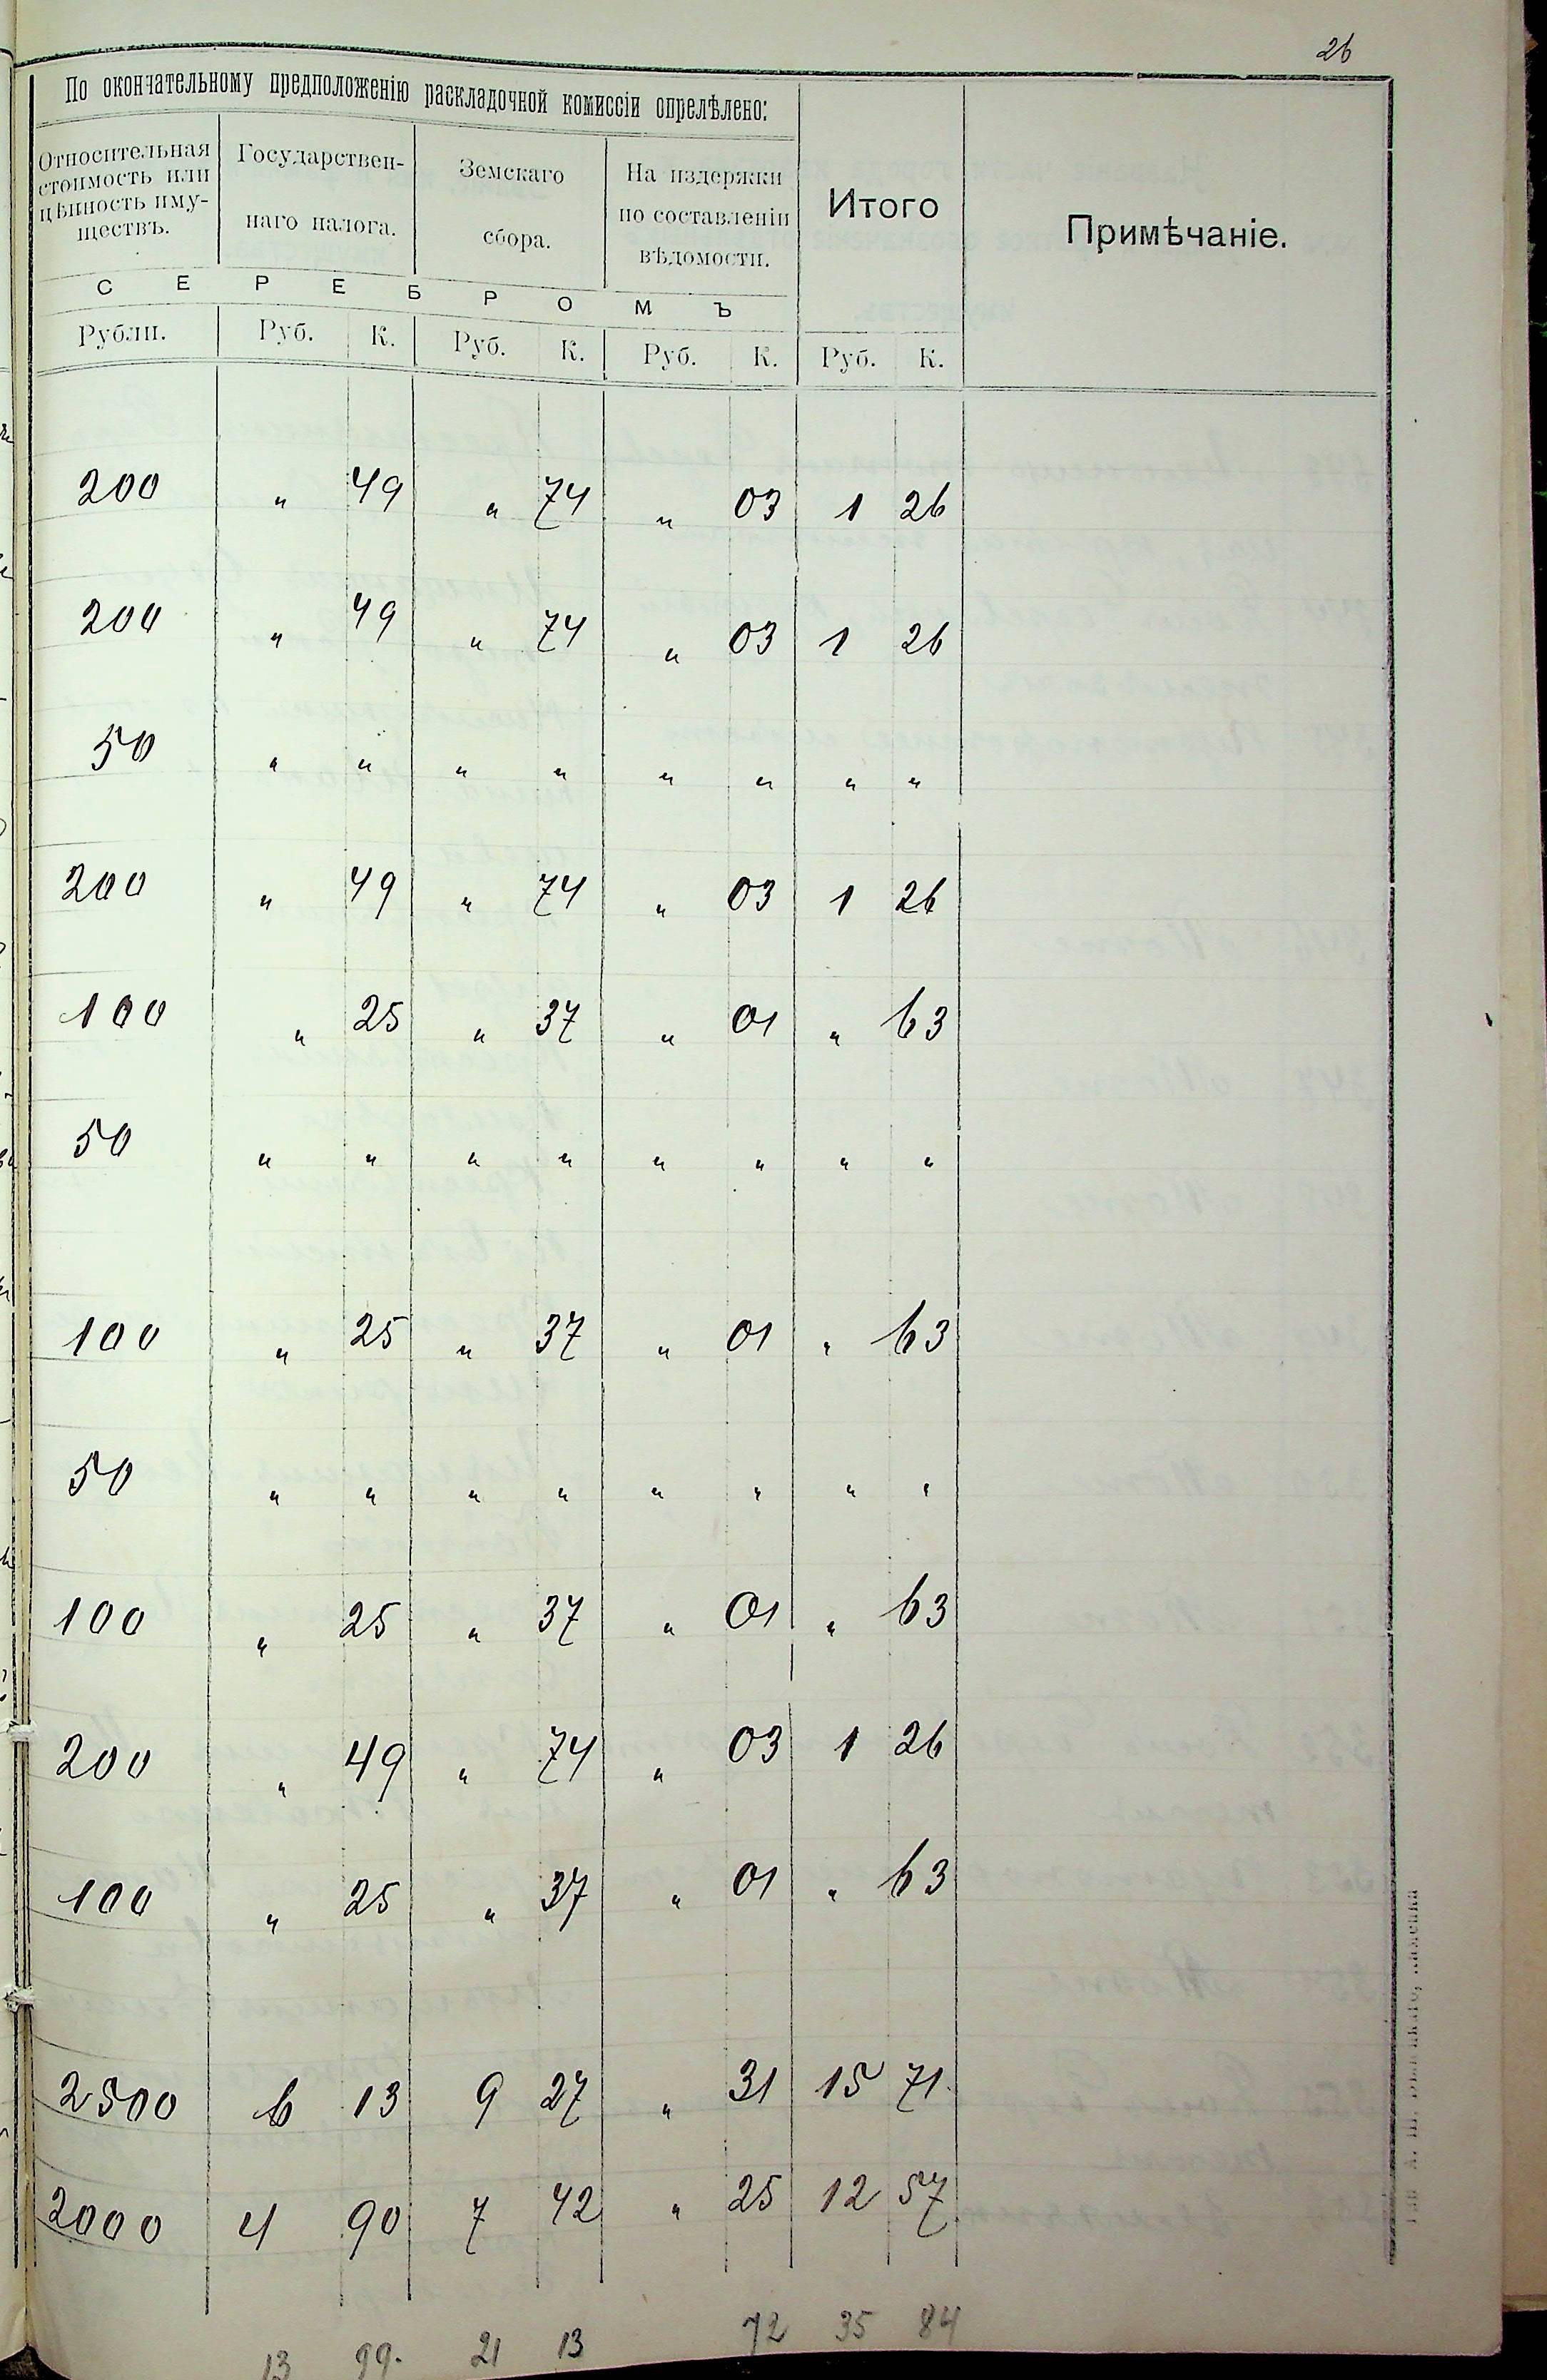 26
По окончательному предположенію раскладочной комиссіи опрелѣлено:
Относительная стоимость или цѣнность имуществъ.
Государственнаго налога.
Земскаго сбора.
На издержки по составленіи вѣдомости.
Итого
Примѣчаніе.
С Е Р Е Б Р О М Ъ
Рубли. Руб. К. Руб. К. Руб. К. Руб. К.
200 " 49 " 74 " 03 1 26
200 " 49 " 74 " 03 1 26
50 " " " " " " " "
200 " 49 " 74 " 03 1 26
100 " 25 " 37 " 01 " 63
50 " " " " " " " "
100 " 25 " 37 " 01 " 63
50 " " " " " " " "
100 " 25 " 37 " 01 " 63
200 " 49 " 74 " 03 1 26
100 " 25 " 37 " 01 " 63
2500 6 13 9 27 " 31 15 71
2000 4 90 7 42 " 25 12 57
13 99. 21 13 72 35 84